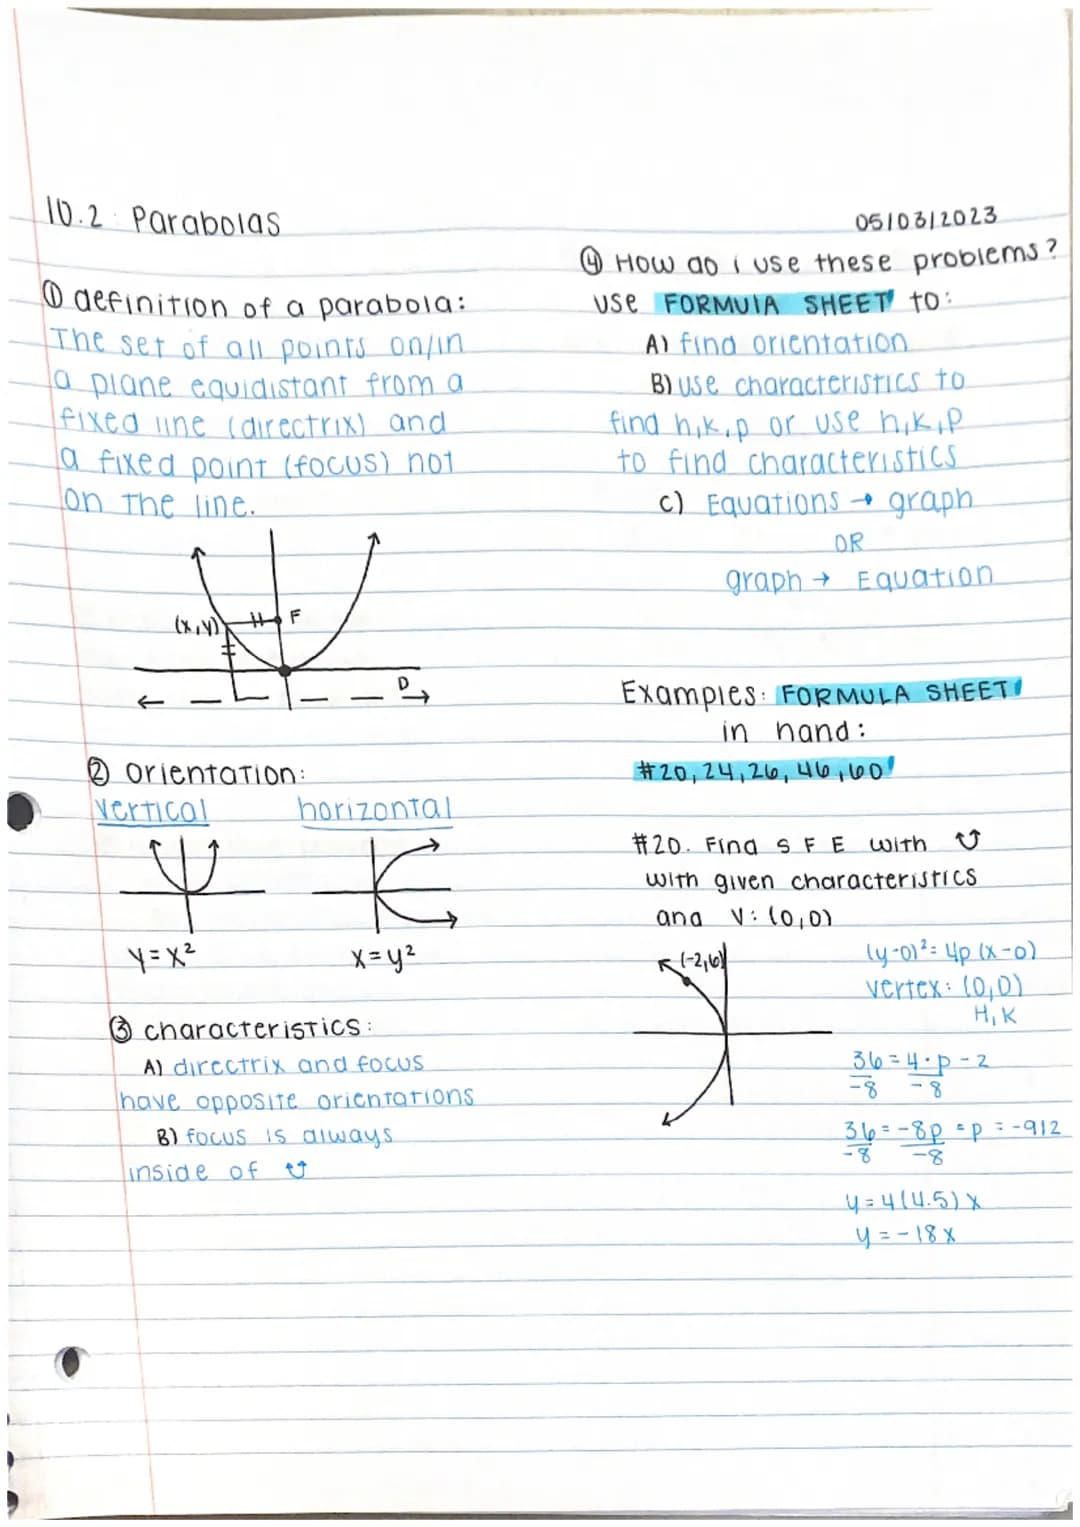 10.2: Parabolas
① definition of a parabola:
The set of all points on/in
a plane equidistant from a
fixed line (directrix) and
a fixed point (focus) not
on the line.
(x,y) F
D
② Orientation:
vertical horizontal
y=x² x=y²
③ characteristics:
A) directrix and focus
have opposite orientations
B) focus is always
inside of
05/03/2023
④ How do i use these problems?
use FORMULA SHEET to:
A) find orientation
B) use characteristics to
find h,k,p or use h,k,p
to find characteristics
C) Equations → graph
OR
graph → Equation
Examples: FORMULA SHEET
in hand:
#20, 24, 26, 46, 60
#20. Find S F E with
with given characteristics
and V: (0,0)
(-2,6)
(y-0)²= 4p (x-0)
vertex: (0,0)
H, K
36 = 4·p - 2
-8 -8
36 = -8p = p = -9/2
-8 -8
y = 4(4.5) x
y = -18x